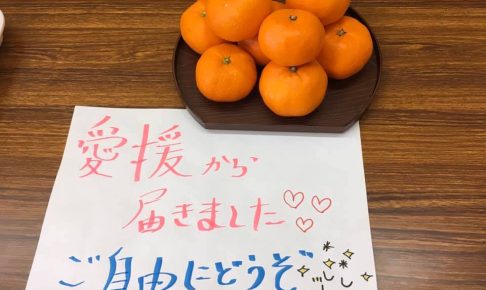 愛援から
届きました♡♡
ご自由にどうぞ